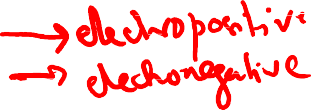 → electropositive
→ electronegative